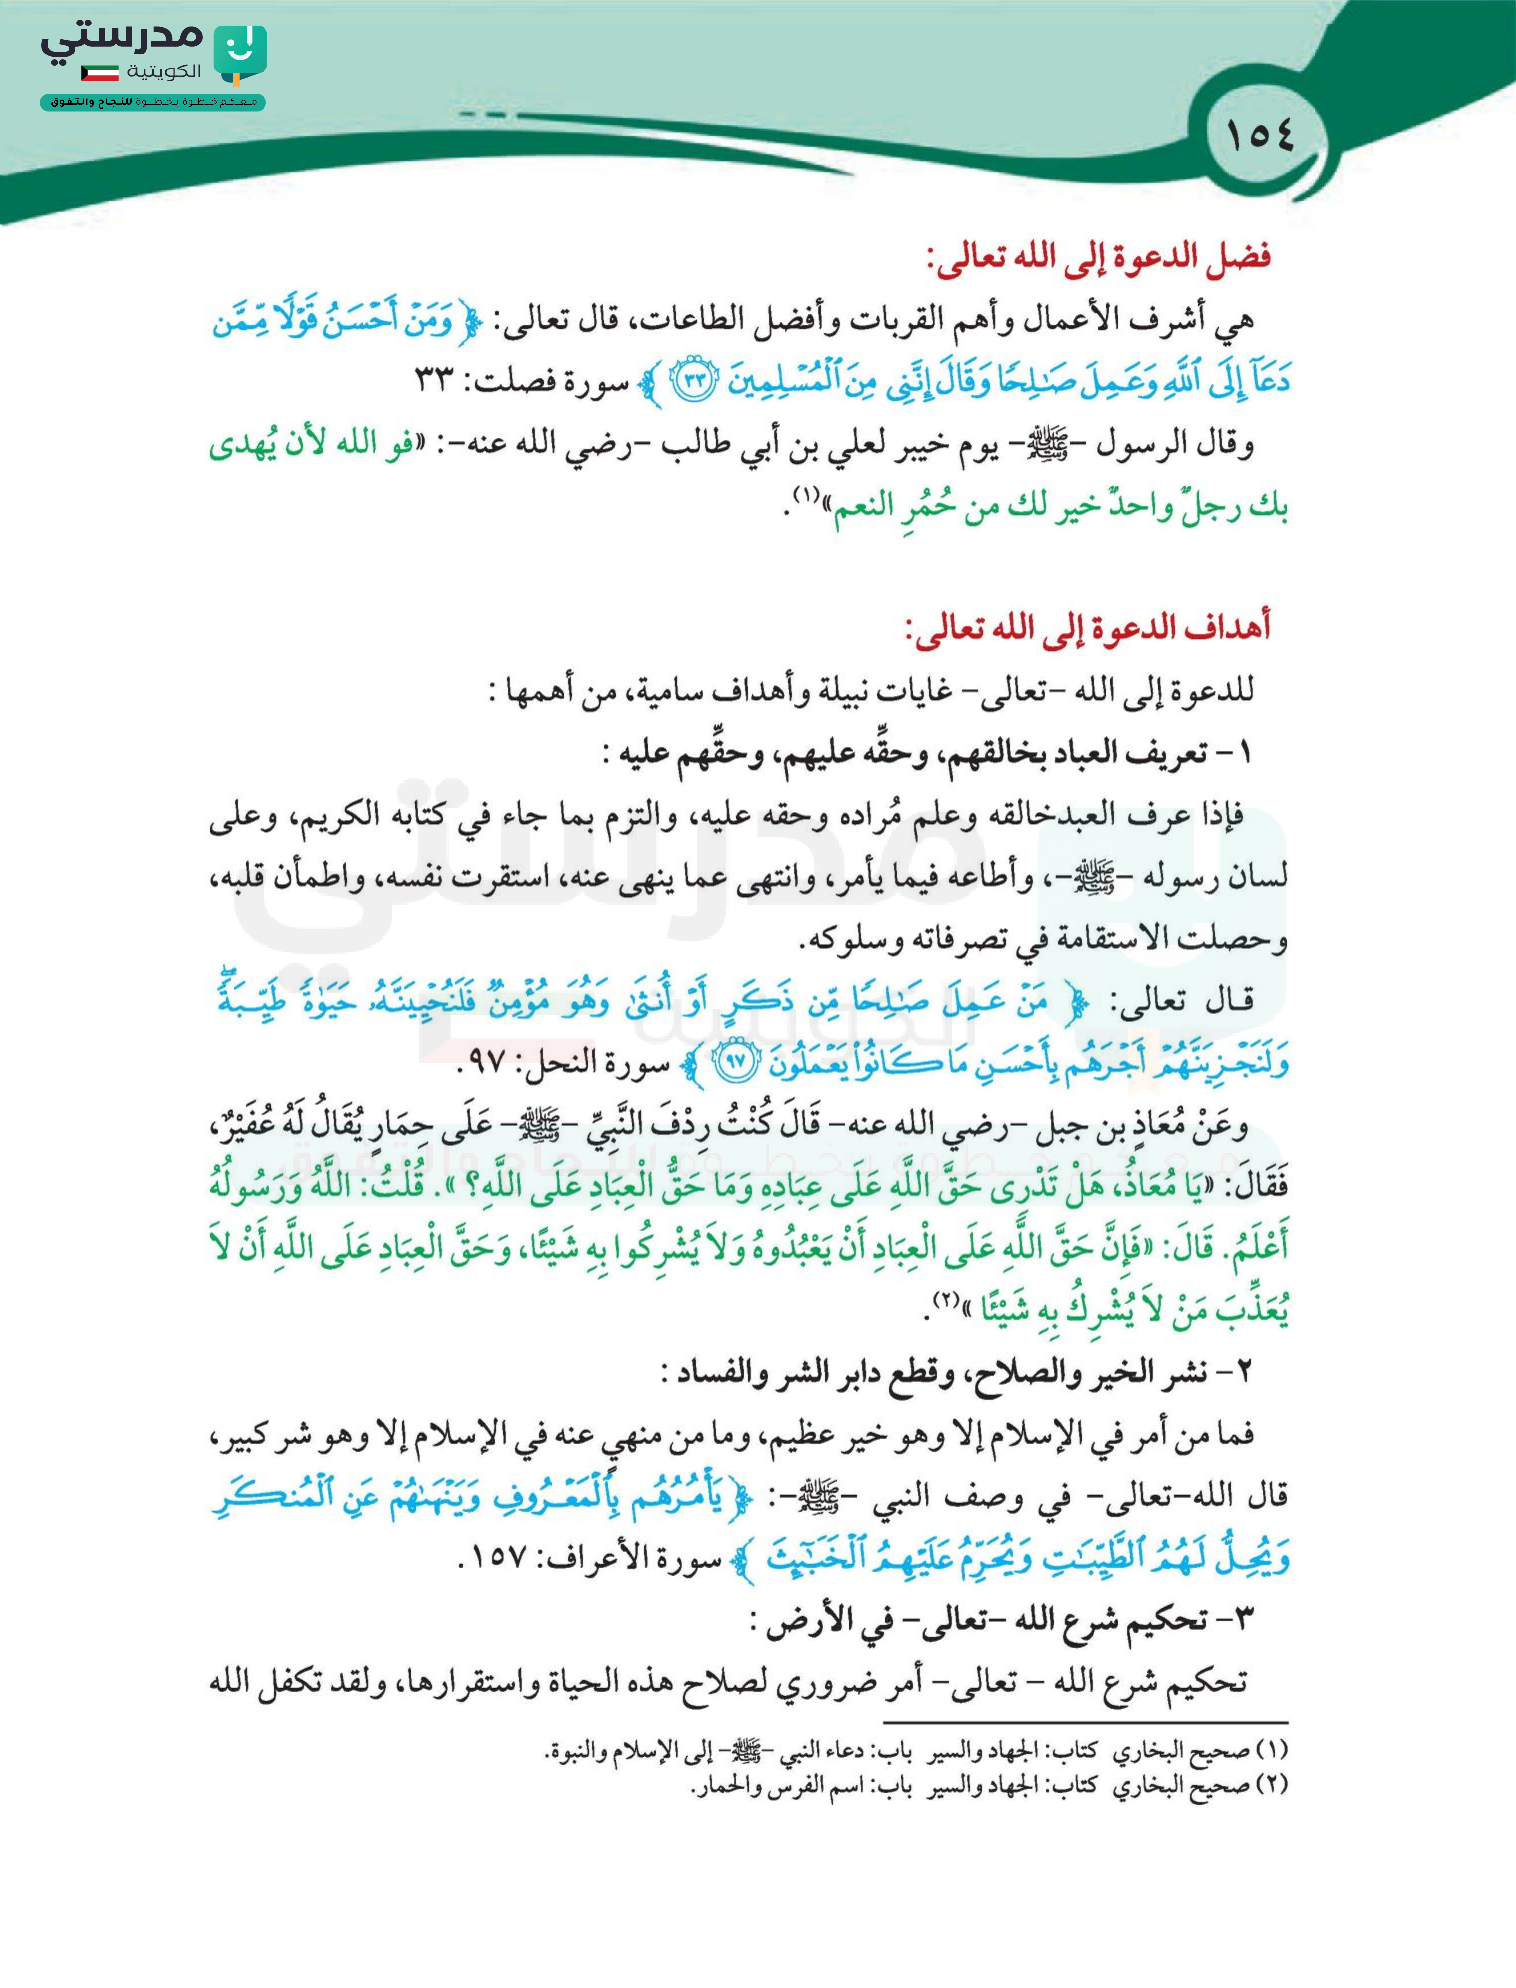 مدرستي
الكويتية
معكم خطوة بخطوة للنجاح والتفوق
١٥٤
فضل الدعوة إلى الله تعالى:
هي أشرف الأعمال وأهم القربات وأفضل الطاعات، قال تعالى: ﴿وَمَنْ أَحْسَنُ قَوْلًا مِّمَّن
دَعَآ إِلَى ٱللَّهِ وَعَمِلَ صَٰلِحًا وَقَالَ إِنَّنِى مِنَ ٱلْمُسْلِمِينَ ٣٣﴾ سورة فصلت: ٣٣
وقال الرسول -ﷺ- يوم خيبر لعلي بن أبي طالب -رضي الله عنه-: «فو الله لأن يُهدى
بك رجلٌ واحدٌ خير لك من حُمُرِ النعم»(١).
أهداف الدعوة إلى الله تعالى:
للدعوة إلى الله -تعالى- غايات نبيلة وأهداف سامية، من أهمها :
١- تعريف العباد بخالقهم، وحقِّه عليهم، وحقِّهم عليه :
فإذا عرف العبدخالقه وعلم مُراده وحقه عليه، والتزم بما جاء في كتابه الكريم، وعلى
لسان رسوله -ﷺ-، وأطاعه فيما يأمر، وانتهى عما ينهى عنه، استقرت نفسه، واطمأن قلبه،
وحصلت الاستقامة في تصرفاته وسلوكه.
قال تعالى: ﴿مَنْ عَمِلَ صَٰلِحًا مِّن ذَكَرٍ أَوْ أُنثَىٰ وَهُوَ مُؤْمِنٌ فَلَنُحْيِيَنَّهُۥ حَيَوٰةً طَيِّبَةً ۖ
وَلَنَجْزِيَنَّهُمْ أَجْرَهُم بِأَحْسَنِ مَا كَانُوا۟ يَعْمَلُونَ ٩٧﴾ سورة النحل: ٩٧.
وعَنْ مُعَاذٍ بن جبل -رضي الله عنه- قَالَ كُنْتُ رِدْفَ النَّبِيِّ -ﷺ- عَلَى حِمَارٍ يُقَالُ لَهُ عُفَيْرٌ،
فَقَالَ: «يَا مُعَاذُ، هَلْ تَدْرِى حَقَّ اللَّهِ عَلَى عِبَادِهِ وَمَا حَقُّ الْعِبَادِ عَلَى اللَّهِ؟ ». قُلْتُ: اللَّهُ وَرَسُولُهُ
أَعْلَمُ. قَالَ: «فَإِنَّ حَقَّ اللَّهِ عَلَى الْعِبَادِ أَنْ يَعْبُدُوهُ وَلاَ يُشْرِكُوا بِهِ شَيْئًا، وَحَقَّ الْعِبَادِ عَلَى اللَّهِ أَنْ لاَ
يُعَذِّبَ مَنْ لاَ يُشْرِكُ بِهِ شَيْئًا »(٢).
٢- نشر الخير والصلاح، وقطع دابر الشر والفساد :
فما من أمر في الإسلام إلا وهو خير عظيم، وما من منهيٍ عنه في الإسلام إلا وهو شر كبير،
قال الله-تعالى- في وصف النبي -ﷺ-: ﴿يَأْمُرُهُم بِٱلْمَعْرُوفِ وَيَنْهَىٰهُمْ عَنِ ٱلْمُنكَرِ
وَيُحِلُّ لَهُمُ ٱلطَّيِّبَٰتِ وَيُحَرِّمُ عَلَيْهِمُ ٱلْخَبَٰٓئِثَ﴾ سورة الأعراف: ١٥٧.
٣- تحكيم شرع الله -تعالى- في الأرض :
تحكيم شرع الله - تعالى- أمر ضروري لصلاح هذه الحياة واستقرارها، ولقد تكفل الله
(١) صحيح البخاري كتاب: الجهاد والسير باب: دعاء النبي -ﷺ- إلى الإسلام والنبوة.
(٢) صحيح البخاري كتاب: الجهاد والسير باب: اسم الفرس والحمار.